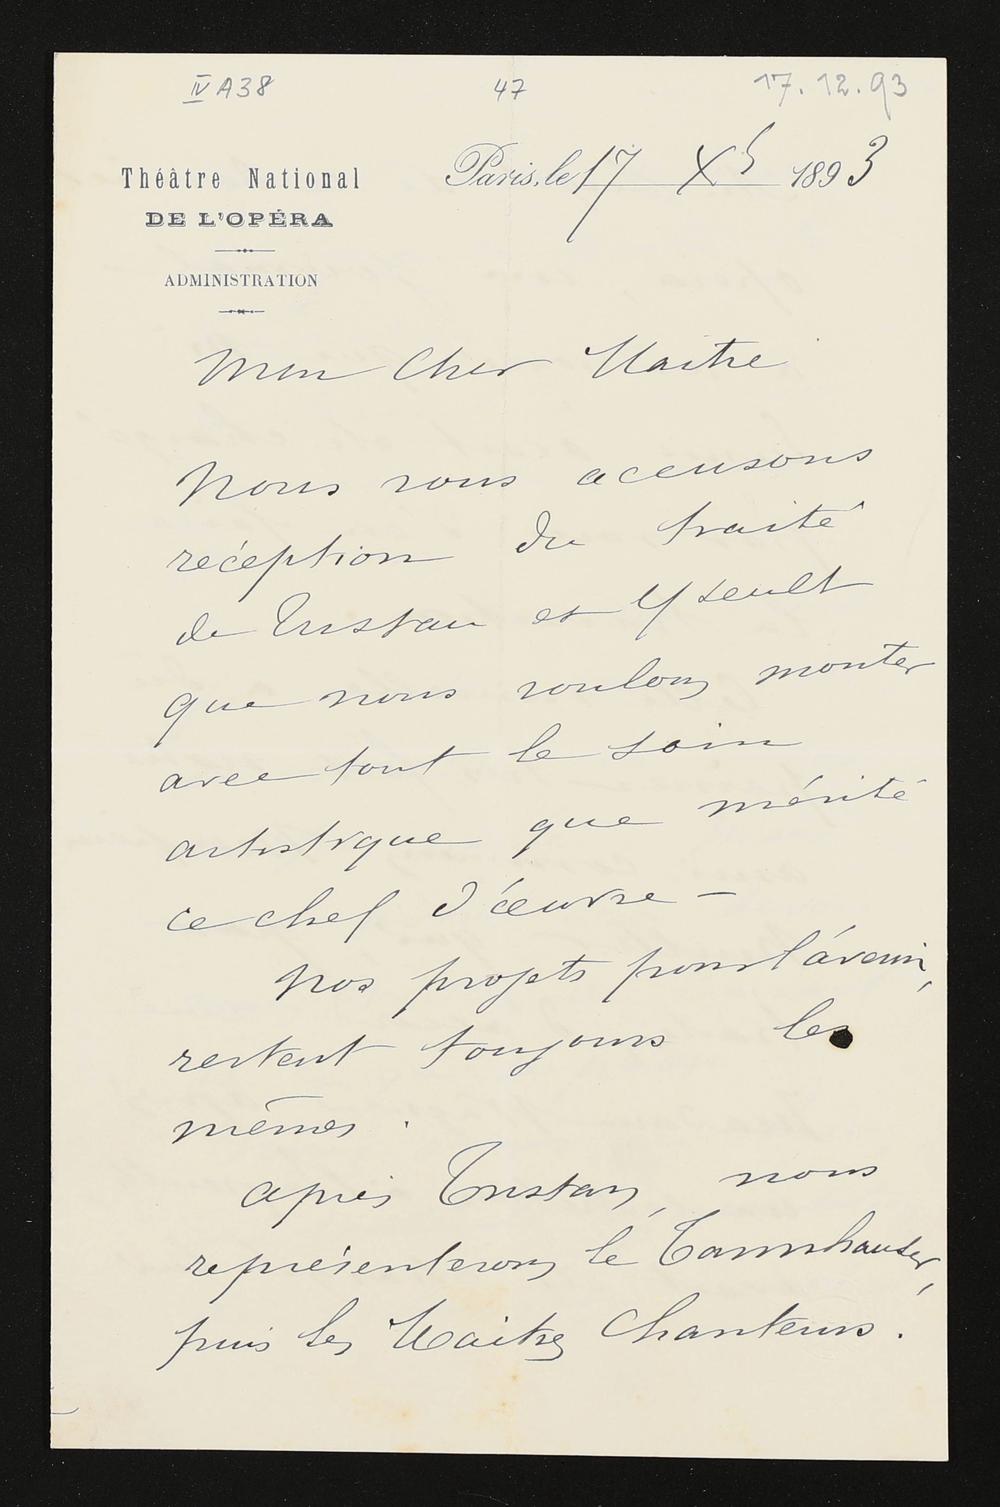 IV A38
47
17.12.93
Théâtre National
DE L'OPÉRA
ADMINISTRATION
Paris, le 17 Xb 1893
Mon Cher Maitre
Nous vous accusons
réception du traité
de Tristan et Yseult
que nous voulons monter
avec tout le soin
artistique que mérité
ce chef d'œuvre —
Nos projets pour l'avenir,
restent toujours les
mêmes.
après Tristan, nous
représenterons le Tannhauser,
puis les Maitres Chanteurs.